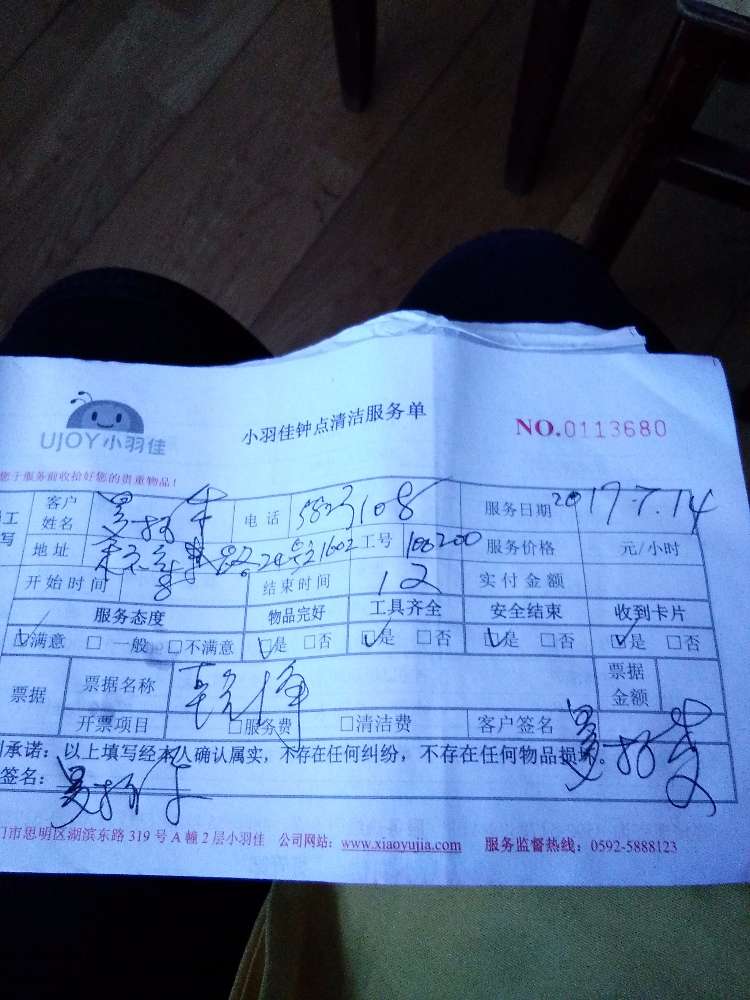 UJOY小羽佳
小羽佳钟点清洁服务单
NO.0113680
您于服务前收拾好您的贵重物品！
客户姓名 电话 服务日期 2017.7.14
地址 工号 100200 服务价格 元/小时
开始时间 8 结束时间 12 实付金额
服务态度 物品完好 工具齐全 安全结束 收到卡片
☑满意 □ 一般 □不满意 ☑是 □否 ☑是 □否 ☑是 □否 ☑是 □否
票据 票据名称 票据金额
开票项目 □服务费 □清洁费 客户签名
承诺：以上填写经本人确认属实，不存在任何纠纷，不存在任何物品损坏。
签名：
门市思明区湖滨东路 319 号 A 幢 2 层小羽佳 公司网站：www.xiaoyujia.com 服务监督热线：0592-5888123